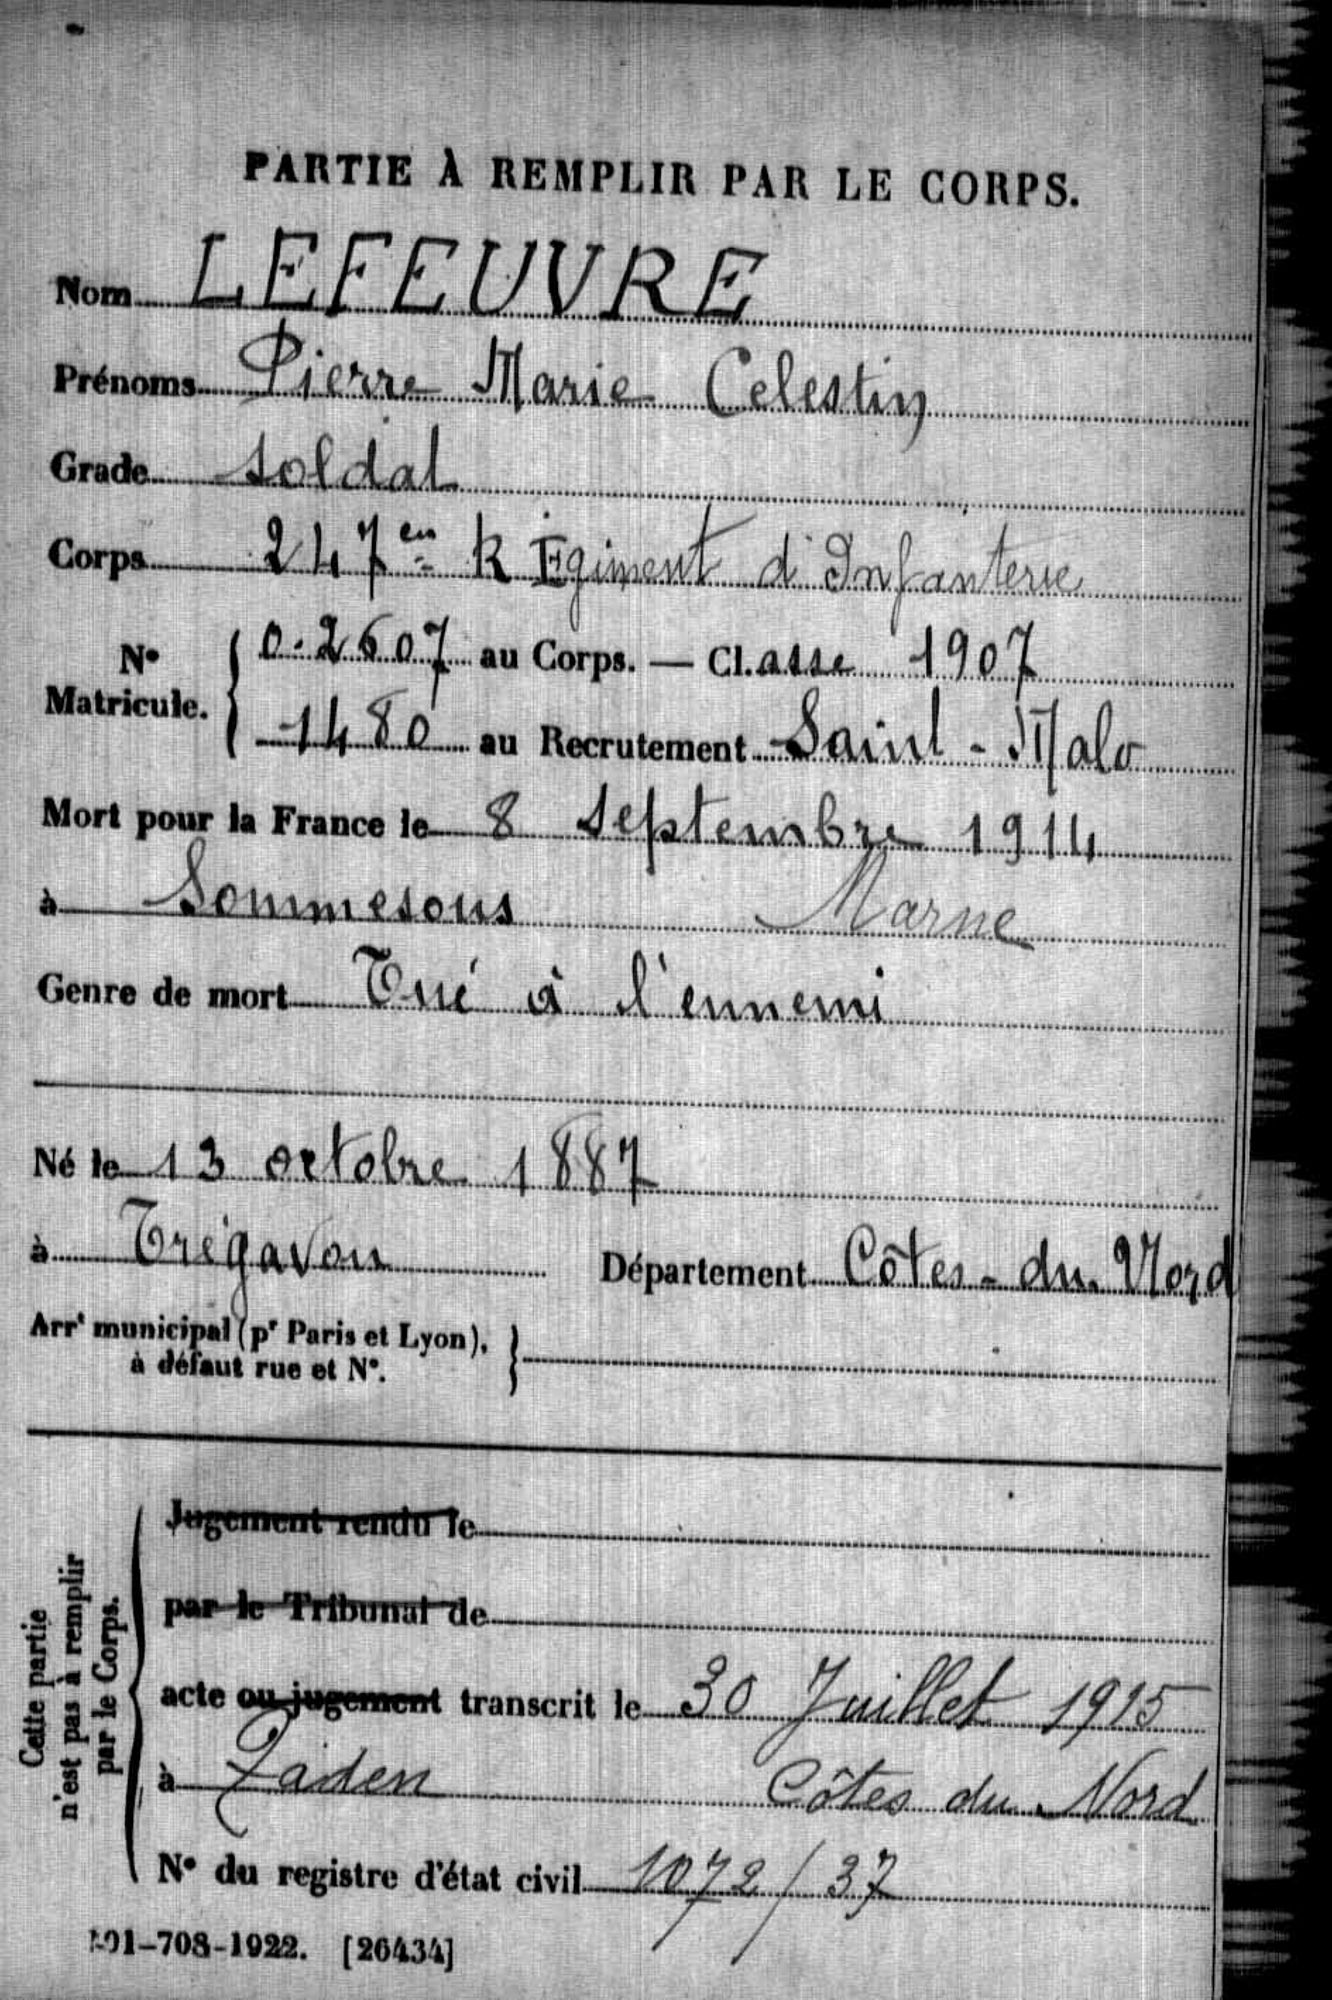 PARTIE À REMPLIR PAR LE CORPS.
Nom LEFEUVRE
Prénoms Pierre Marie Celestin
Grade soldat
Corps 247en REgiment d'Infanterie
N° Matricule. { 0.2607 au Corps. — Cl.asse 1907
1480 au Recrutement Saint-Malo
Mort pour la France le 8 septembre 1914
à Sommesous Marne
Genre de mort Tué à l'ennemi
Né le 13 octobre 1887
à Trégavou Département Côtes-du-Nord
Arrt municipal (pr Paris et Lyon), à défaut rue et N°. }
Cette partie n'est pas à remplir par le Corps.
Jugement rendu le
par le Tribunal de
acte ou jugement transcrit le 30 Juillet 1915
à Taden Côtes du Nord
N° du registre d'état civil 1072/37
01-708-1922. [26434]